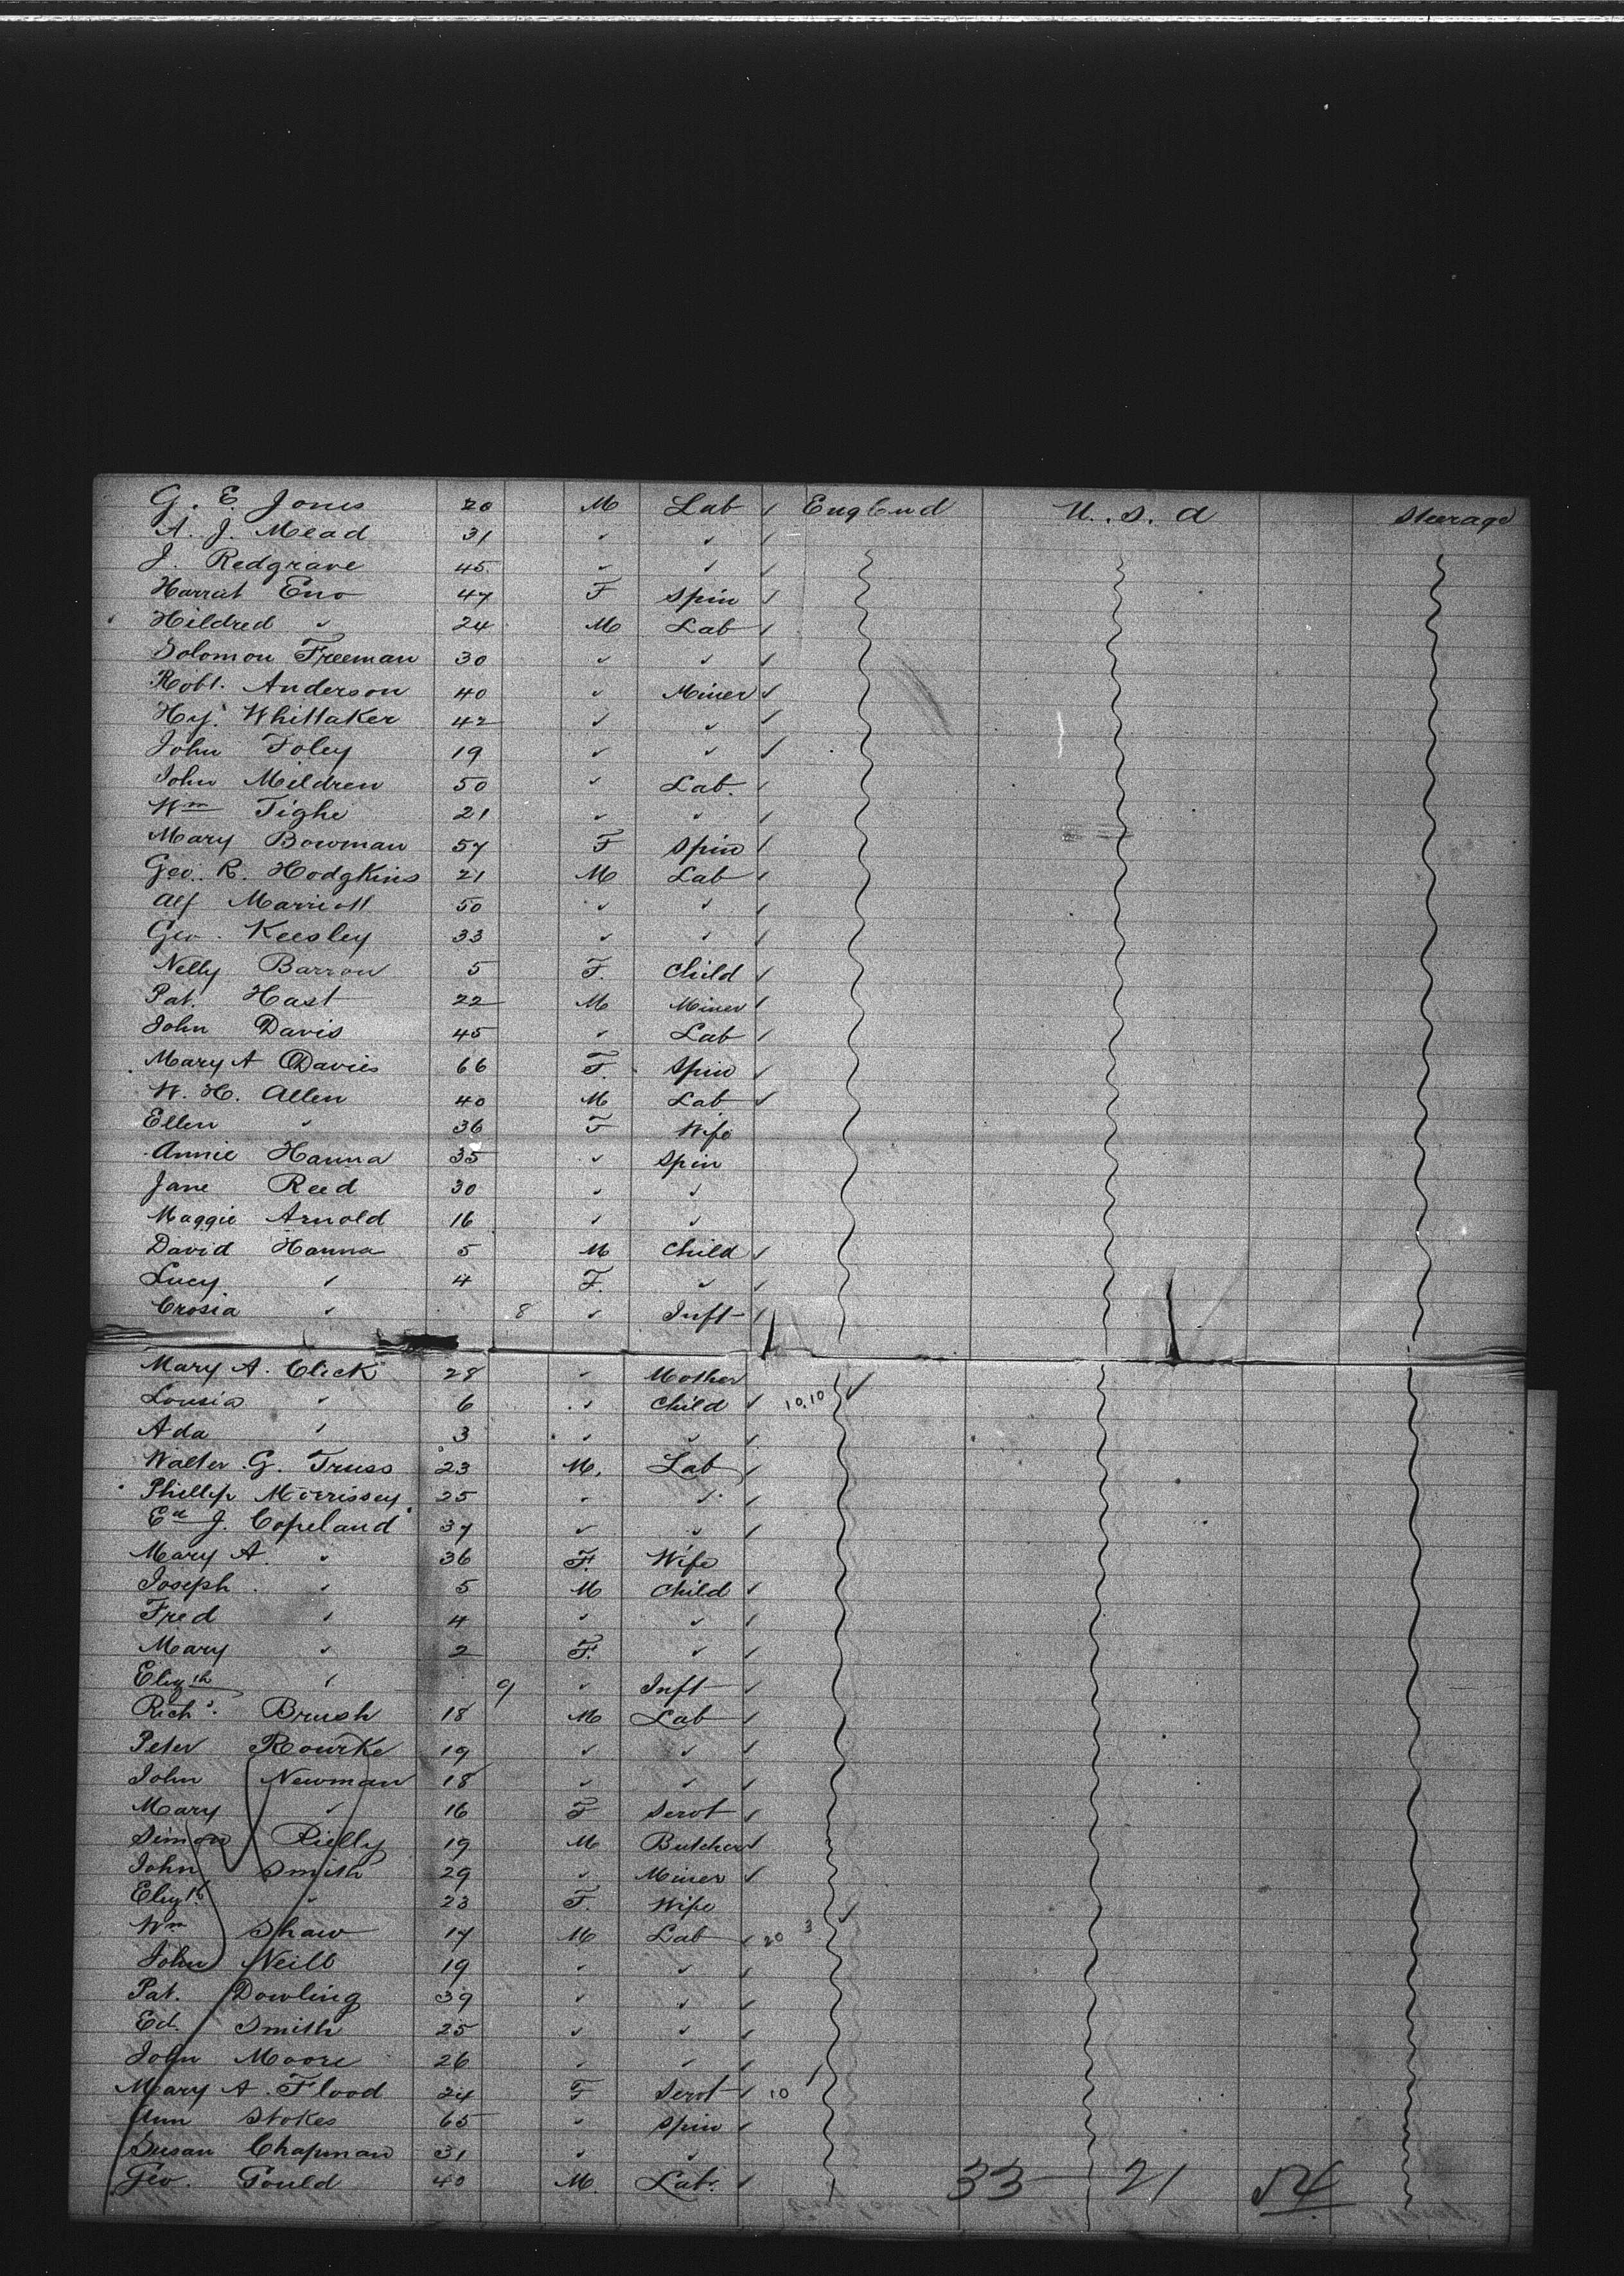 G. E. Jones 20 M Lab ✓ England U.S.A Steerage
A. J. Mead 31 ✓ ✓ ✓
J. Redgrave 45 ✓ ✓ ✓
Harriet Eno 47 F Spin ✓
Hildred ✓ 24 M Lab ✓
Solomon Freeman 30 ✓ ✓ ✓
Robt. Anderson 40 ✓ Miner ✓
Hy. Whittaker 42 ✓ ✓ ✓
John Foley 19 ✓ ✓ ✓
John Mildren 50 ✓ Lab. ✓
Wm Tighe 21 ✓ ✓ ✓
Mary Bowman 57 F Spin ✓
Geo. R. Hodgkins 21 M Lab ✓
Alf Marriott 50 ✓ ✓ ✓
Geo. Keesley 33 ✓ ✓ ✓
Nelly Barron 5 F. Child ✓
Pat. Hast 22 M Miner ✓
John Davis 45 ✓ Lab ✓
Mary A Davies 66 F. Spin ✓
W. H. Allen 40 M Lab ✓
Ellen ✓ 36 F Wife
Annie Hanna 35 ✓ Spin
Jane Reed 30 ✓ ✓
Maggie Arnold 16 ✓ ✓
David Hanna 5 M Child ✓
Lucy ✓ 4 F. ✓ ✓
Crosia ✓ 8 ✓ Inft ✓
Mary A. Click 28 ✓ Mother
Lousia ✓ 6 ✓ Child ✓ 10.10 ✓
Ada ✓ 3 ✓ ✓ ✓
Walter G. Truss 23 M. Lab ✓
Phillip Morrissey 25 ✓ ✓ ✓
Ed J. Copeland 37 ✓ ✓ ✓
Mary A. ✓ 36 F. Wife
Joseph ✓ 5 M Child ✓
Fred ✓ 4 ✓ ✓ ✓
Mary ✓ 2 F. ✓ ✓
Elizth ✓ 9 ✓ Inft ✓
Richd. Brush 18 M Lab ✓
Peter Rourke 19 ✓ ✓ ✓
John Newman 18 ✓ ✓ ✓
Mary ✓ 16 F Servt ✓
Simon Rielly 19 M Butcher ✓
John Smith 29 ✓ Miner ✓
Elizth ✓ 23 F. Wife ✓
Wm Shaw 17 M Lab ✓ 20 3
John Neill 19 ✓ ✓ ✓
Pat. Dowling 39 ✓ ✓ ✓
Ed. Smith 25 ✓ ✓ ✓
John Moore 26 ✓ ✓ ✓
Mary A. Flood 24 F Servt ✓ 10 1
Ann Stokes 65 ✓ Spin ✓
Susan Chapman 31 ✓ ✓
Geo. Gould 40 M. Lab. ✓ 33 21 54